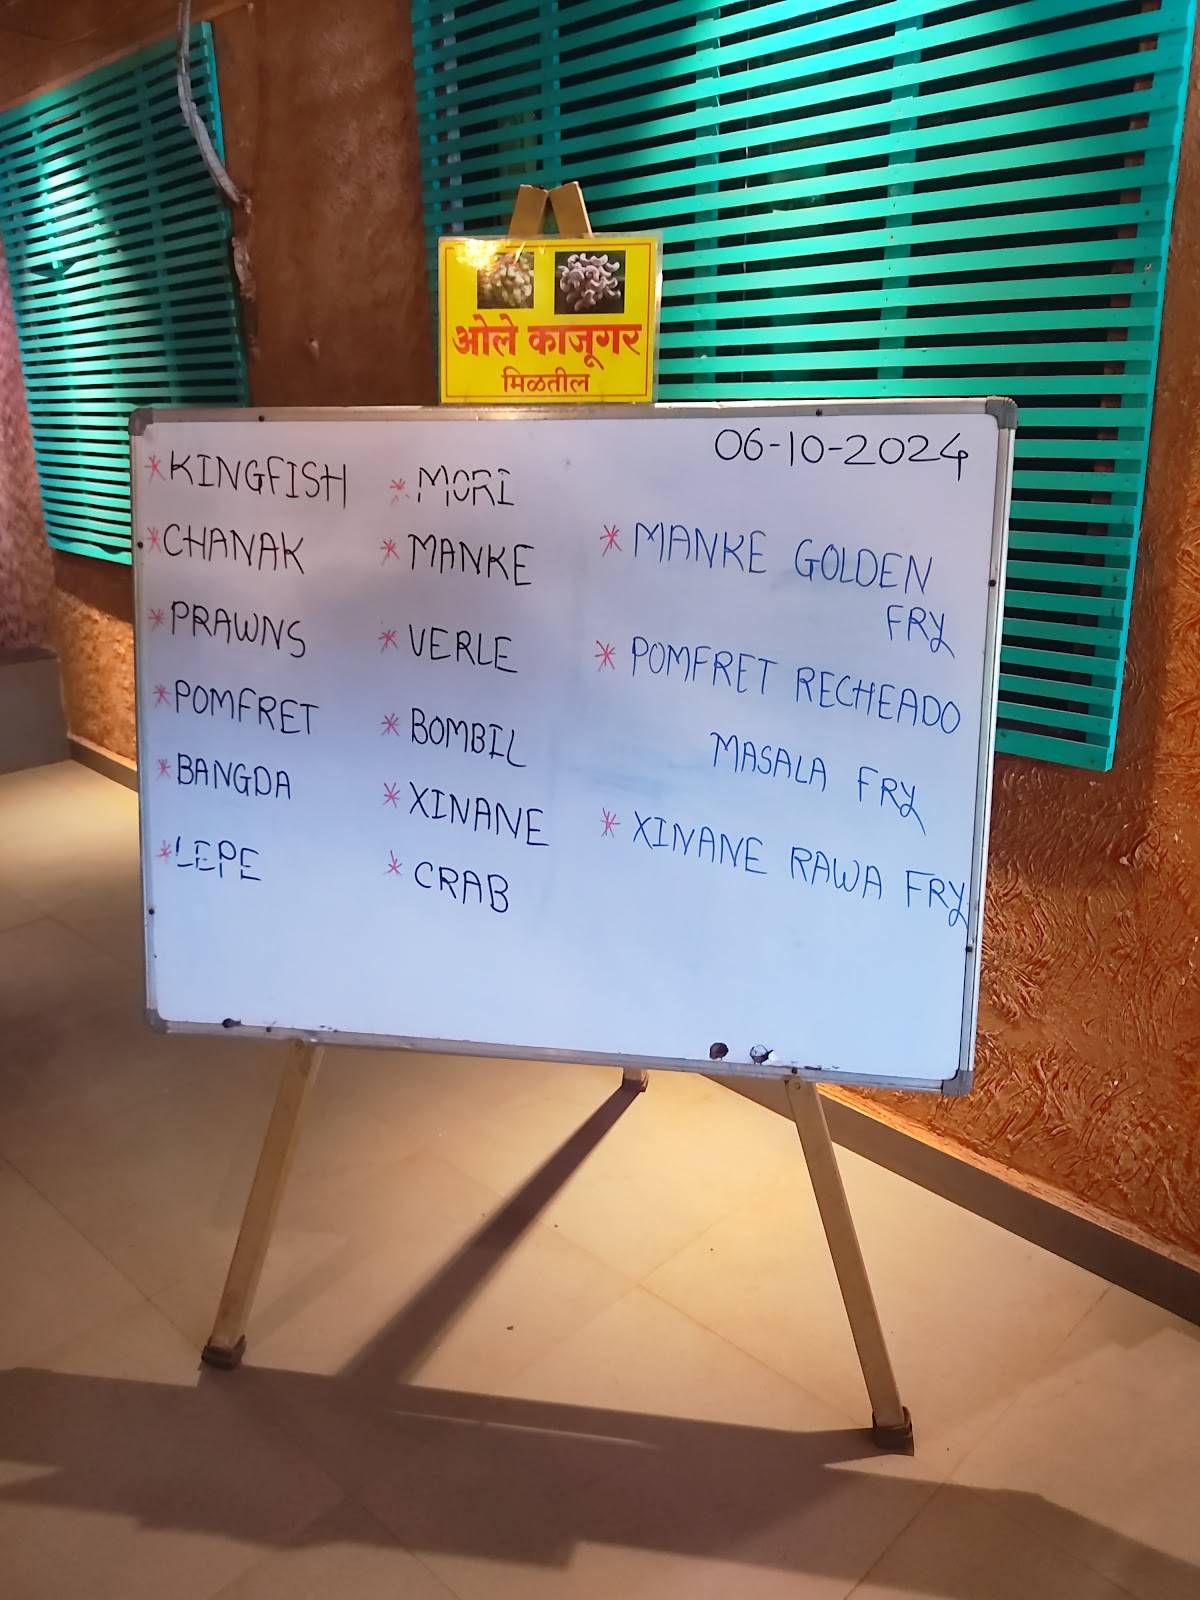 ओले काजूगर
मिळतील
06-10-2024
* KINGFISH
* CHANAK
* PRAWNS
* POMFRET
* BANGDA
* LEPE
* MORI
* MANKE
* VERLE
* BOMBIL
* XINANE
* CRAB
* MANKE GOLDEN
FRY
* POMFRET RECHEADO
MASALA FRY
* XINANE RAWA FRY